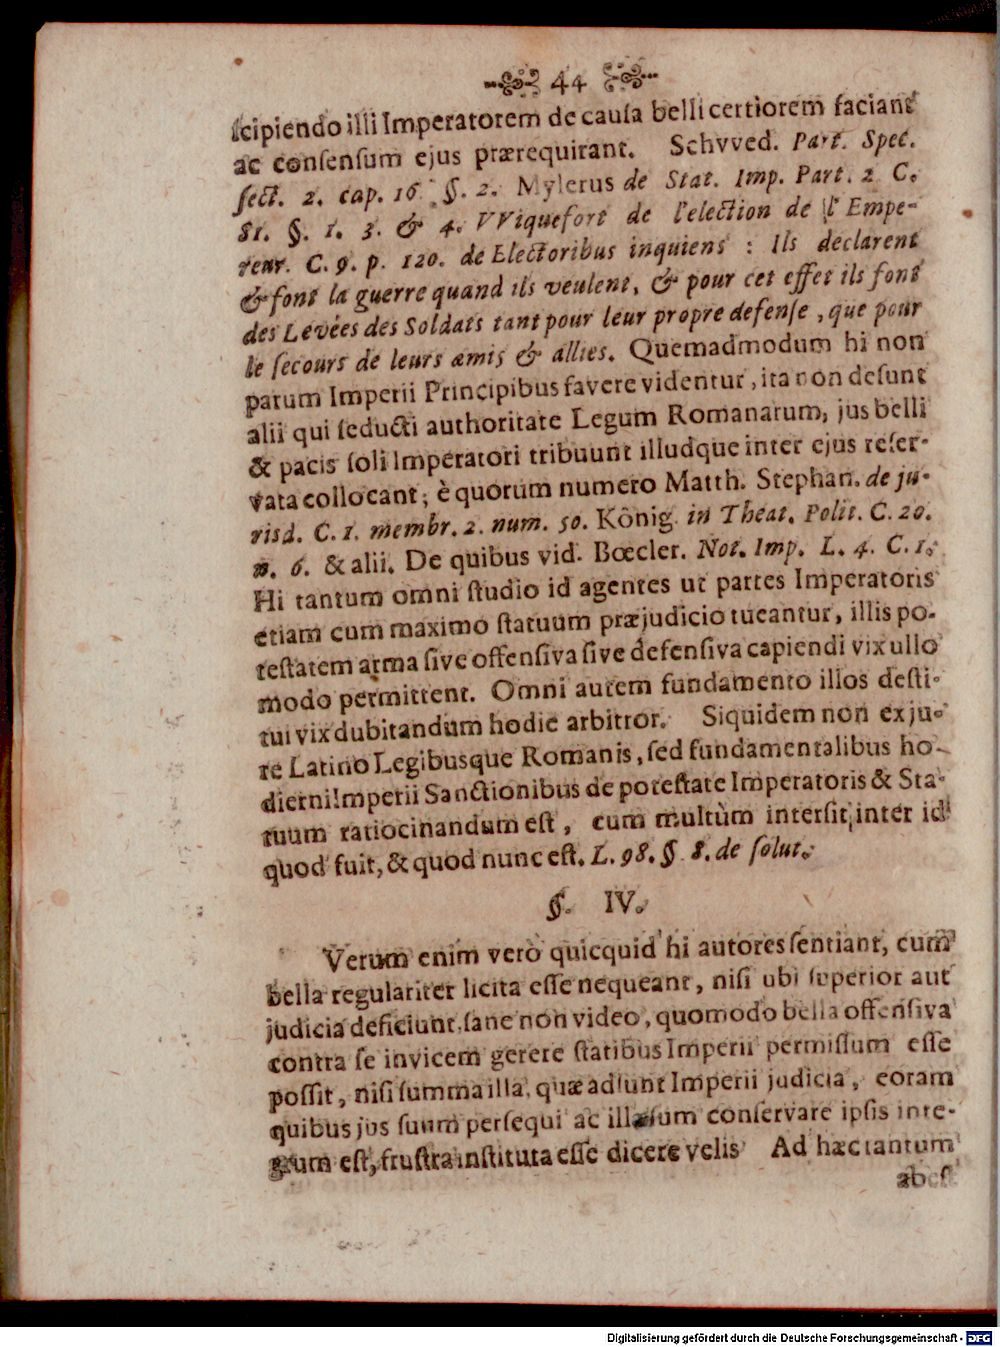 44
scipiendo illi Imperatorem de causa belli certiorem faciant
ac consensum ejus prærequirant. Schvved. Part. Spec.
sect. 2. cap. 16. §. 2. Mylerus de Stat. Imp. Part. 2 C.
81. §. 1. 3. & 4. VViquefort de l'election de l'Empe-
reur. C. 9. p. 120. de Electoribus inquiens : Ils declarent
& font la guerre quand ils veulent, & pour cet effet ils font
des Levées des Soldats tant pour leur propre defense, que pour
le secours de leurs amis & allies. Quemadmodum hi non
parum Imperii Principibus favere videntur, ita non desunt
alii qui seducti authoritate Legum Romanarum, jus belli
& pacis soli Imperatori tribuunt illudque inter ejus reser-
vata collocant; è quorum numero Matth. Stephan. de ju-
risd. C. 1. membr. 2. num. 50. König. in Theat. Polit. C. 20.
n. 6. & alii. De quibus vid. Bœcler. Not. Imp. L. 4. C. 1.
Hi tantum omni studio id agentes ut partes Imperatoris
etiam cum maximo statuum præjudicio tueantur, illis po-
testatem arma sive offensiva sive defensiva capiendi vix ullo
modo permittent. Omni autem fundamento illos desti-
tui vix dubitandum hodie arbitror. Siquidem non ex ju-
re Latino Legibusque Romanis, sed fundamentalibus ho-
dierni Imperii Sanctionibus de potestate Imperatoris & Sta-
tuum ratiocinandum est, cum multùm intersit, inter id
quod fuit, & quod nunc est. L. 98. §. 8. de solut.
§. IV.
Verum enim verò quicquid hi autores sentiant, cum
bella regulariter licita esse nequeant, nisi ubi superior aut
judicia deficiunt, sane non video, quomodo bella offensiva
contra se invicem gerere statibus Imperii permissum esse
possit, nisi summa illa, quæ adsunt Imperii judicia, coram
quibus jus suum persequi ac illæsum conservare ipsis inte-
grum est, frustra instituta esse dicere velis Ad hæc tantum
abest
Digitalisierung gefördert durch die Deutsche Forschungsgemeinschaft - DFG